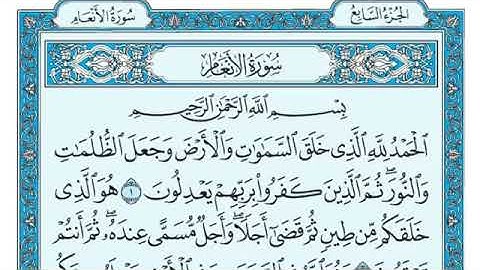 الجُزْءُ السَّابِعُ
سُورَةُ الأَنْعَامِ
سُورَةُ الأَنْعَامِ
بِسْمِ ٱللَّهِ ٱلرَّحْمَٰنِ ٱلرَّحِيمِ
ٱلْحَمْدُ لِلَّهِ ٱلَّذِى خَلَقَ ٱلسَّمَٰوَٰتِ وَٱلْأَرْضَ وَجَعَلَ ٱلظُّلُمَٰتِ
وَٱلنُّورَ ۖ ثُمَّ ٱلَّذِينَ كَفَرُوا۟ بِرَبِّهِمْ يَعْدِلُونَ ١ هُوَ ٱلَّذِى
خَلَقَكُم مِّن طِينٍ ثُمَّ قَضَىٰٓ أَجَلًا ۖ وَأَجَلٌ مُّسَمًّى عِندَهُۥ ۖ ثُمَّ أَنتُمْ